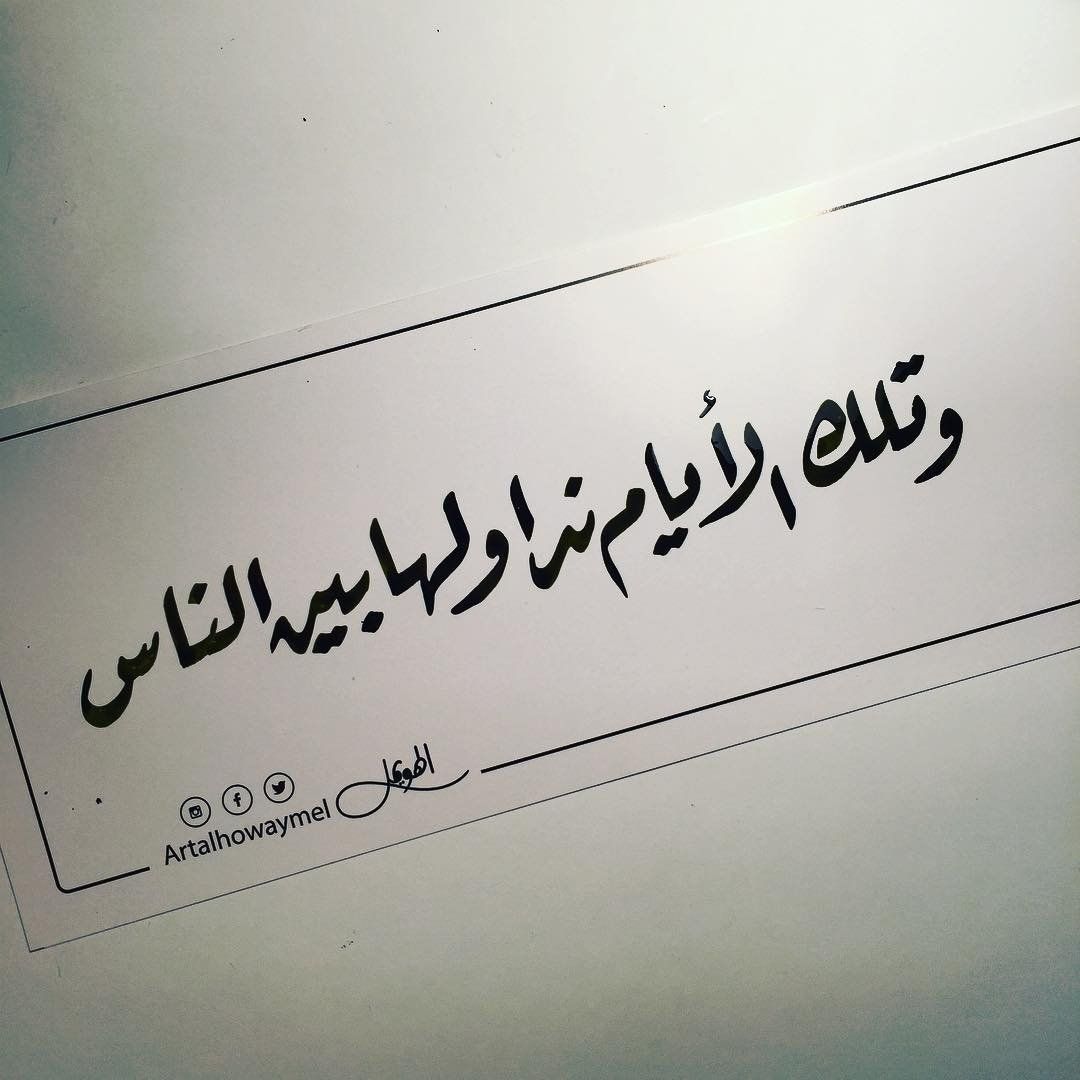 وتلك الأيام نداولها بين الناس
الهويمل
Artalhowaymel